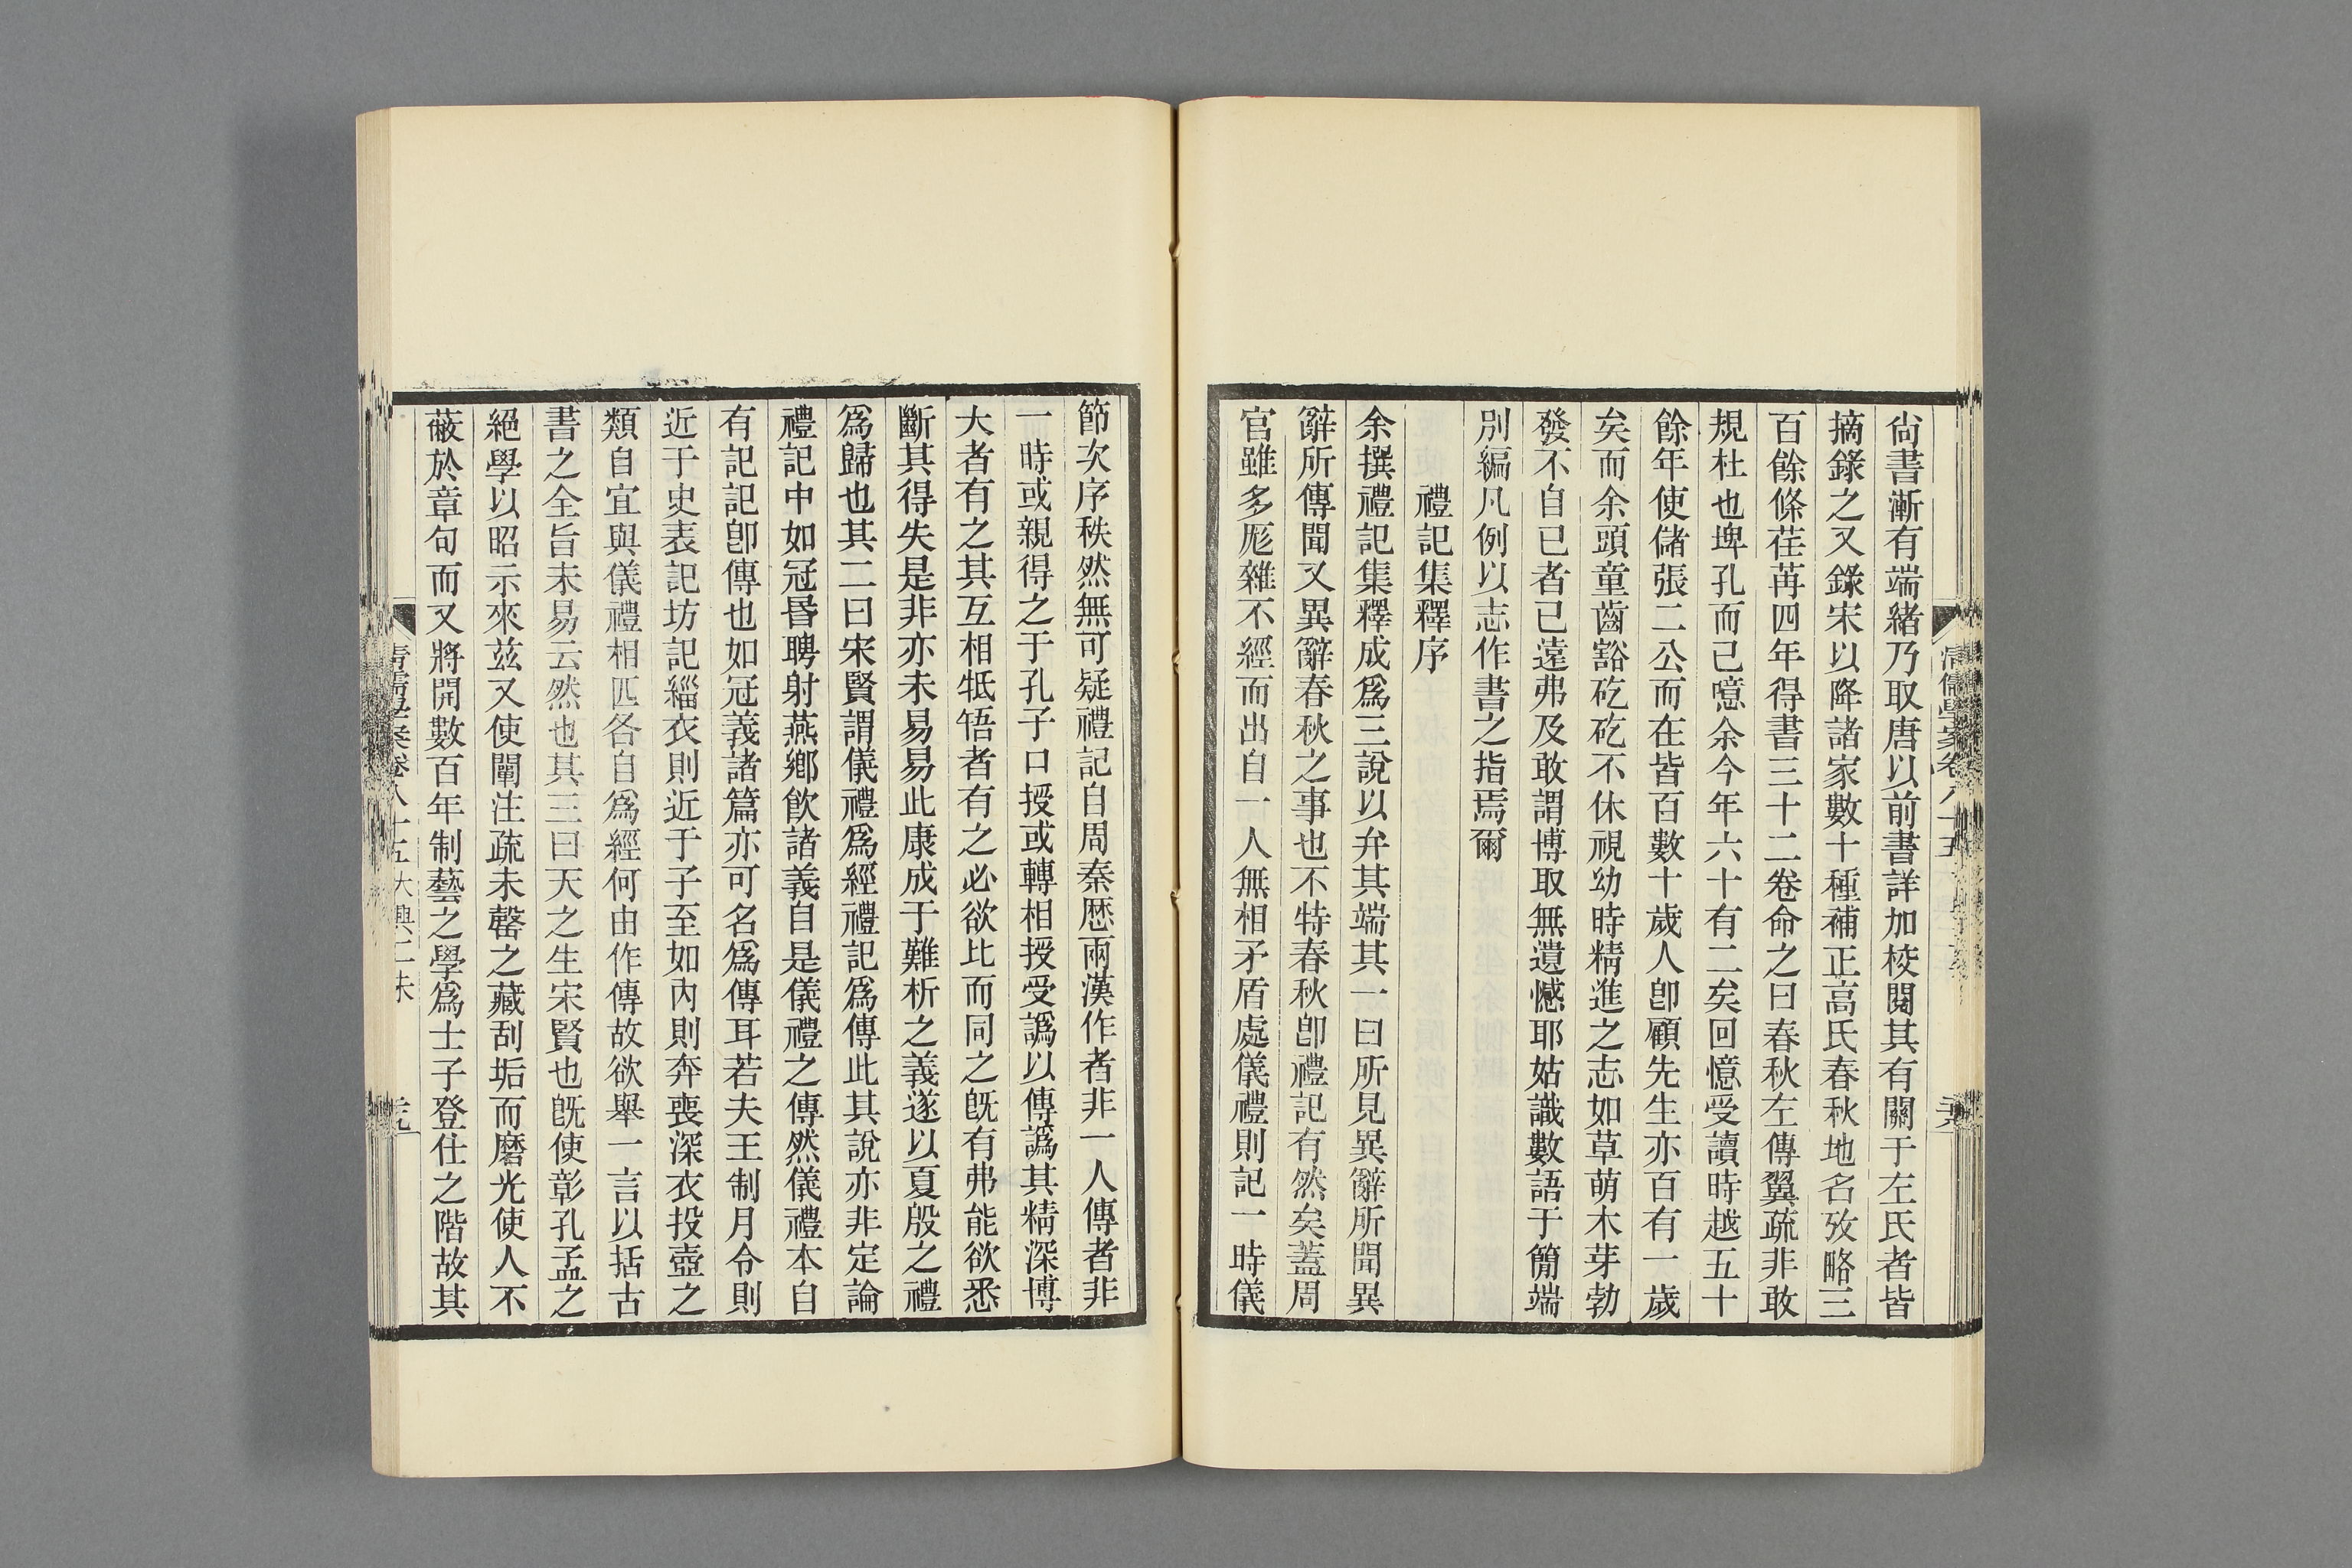 尙書漸有端緒乃取唐以前書詳加校閱其有關于左氏者皆
摘錄之又錄宋以降諸家數十種補正高氏春秋地名攷略三
百餘條荏苒四年得書三十二卷命之曰春秋左傳翼疏非敢
規杜也埤孔而已噫余今年六十有二矣回憶受讀時越五十
餘年使儲張二公而在皆百數十歲人卽顧先生亦百有一歲
矣而余頭童齒豁矻矻不休視幼時精進之志如草萌木芽勃
發不自已者已遠弗及敢謂博取無遺憾耶姑識數語于簡端
別編凡例以志作書之指焉爾
禮記集釋序
余撰禮記集釋成爲三說以弁其端其一曰所見異辭所聞異
辭所傳聞又異辭春秋之事也不特春秋卽禮記有然矣蓋周
官雖多厖雜不經而出自一人無相矛盾處儀禮則記一時儀
節次序秩然無可疑禮記自周秦歷兩漢作者非一人傳者非
一時或親得之于孔子口授或轉相授受譌以傳譌其精深博
大者有之其互相牴牾者有之必欲比而同之旣有弗能欲悉
斷其得失是非亦未易易此康成于難析之義遂以夏殷之禮
爲歸也其二曰宋賢謂儀禮爲經禮記爲傳此其說亦非定論
禮記中如冠昏聘射燕鄉飮諸義自是儀禮之傳然儀禮本自
有記記卽傳也如冠義諸篇亦可名爲傳耳若夫王制月令則
近于史表記坊記緇衣則近于子至如內則奔喪深衣投壺之
類自宜與儀禮相匹各自爲經何由作傳故欲舉一言以括古
書之全旨未易云然也其三曰天之生宋賢也旣使彰孔孟之
絕學以昭示來茲又使闡注疏未罄之藏刮垢而磨光使人不
蔽於章句而又將開數百年制藝之學爲士子登仕之階故其
清儒學案卷八十五 大興二朱